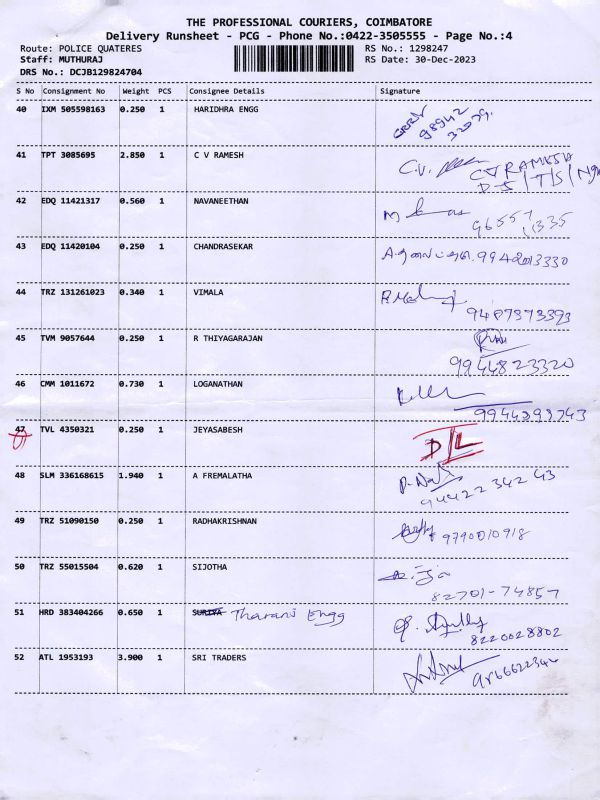 THE PROFESSIONAL COURIERS, COIMBATORE
Delivery Runsheet - PCG - Phone No.:0422-3505555 - Page No.:4
Route: POLICE QUATERES RS No.: 1298247
Staff: MUTHURAJ RS Date: 30-Dec-2023
DRS No.: DCJB129824704
S No Consignment No Weight PCS Consignee Details Signature
40 IXM 505598163 0.250 1 HARIDHRA ENGG
98942
32079
41 TPT 3085695 2.850 1 C V RAMESH C.V. CV RAMESH
D-5/T/S/
42 EDQ 11421317 0.560 1 NAVANEETHAN
43 EDQ 11420104 0.250 1 CHANDRASEKAR
44 TRZ 131261023 0.340 1 VIMALA
9487373393
45 TVM 9057644 0.250 1 R THIYAGARAJAN
9944823320
46 CMM 1011672 0.730 1 LOGANATHAN
47 TVL 4350321 0.250 1 JEYASABESH D/L
48 SLM 336168615 1.940 1 A FREMALATHA
94422 342 43
49 TRZ 51090150 0.250 1 RADHAKRISHNAN 9790010918
50 TRZ 55015504 0.620 1 SIJOTHA
82701-74857
51 HRD 383404266 0.650 1 SURIYA Tharani Engg
8220028802
52 ATL 1953193 3.900 1 SRI TRADERS